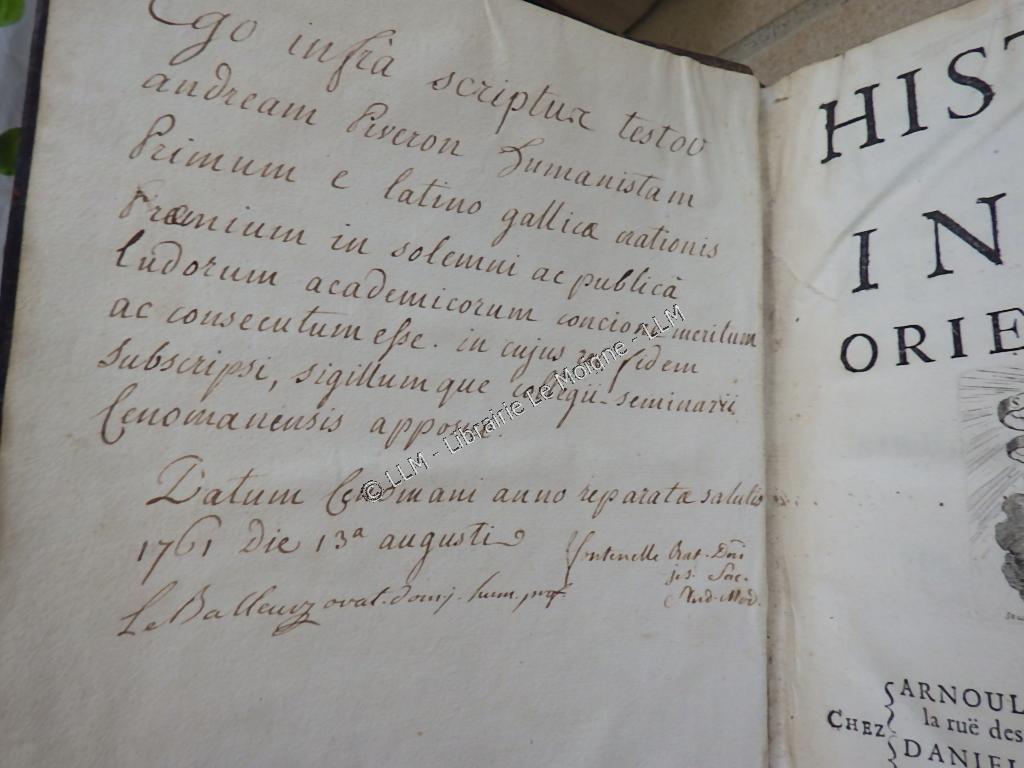 Ego infrà scriptus testor
andream Piveron humanistam
Primum e latino gallicæ orationis
Præmium in solemni ac publicâ
ludorum academicorum concione meritum
ac consecutum esse. in cujus rei fidem
subscripsi, sigillumque collegii-seminarii
Cenomanensis apposui.
Datum Cenomani anno reparatæ salutis
1761 die 13ª augusti
fontenelle Orat. Dni
jes. Sac.
Stud. Mod.
Le Balleur, orat. domj. hum. prof
© LLM - Librairie Le Moigne - LLM
HIST
IN
ORIE
CHEZ
ARNOUL
la ruë des
DANIEL